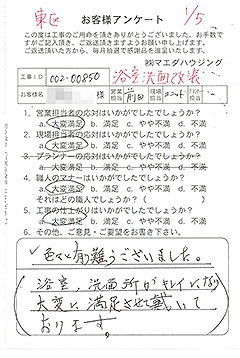 東区
お客様アンケート
1/5
この度は工事のご用命を頂きありがとうございました。お手数で
すがご記入頂き、ご返送頂きますようお願い申し上げます。
ご返送頂いた方から、毎月抽選で感謝品を進呈いたします。
㈱マエダハウジング
工事ID 002-00850
浴室洗面改装
お客様名 様 営業担当 前田 現場担当
1. 営業担当者の応対はいかがでしたでしょうか?
a.大変満足 b. 満足 c. やや不満 d. 不満
2. 現場担当者の応対はいかがでしたでしょうか?
a.大変満足 b. 満足 c. やや不満 d. 不満
3. プランナーの応対はいかがでしたでしょうか?
a.大変満足 b. 満足 c. やや不満 d. 不満
4. 職人のマナーはいかがでしたでしょうか?
a.大変満足 b. 満足 c. やや不満 d. 不満
それはどの職人でしょうか?( )
5. 工事の仕上がりはいかがでしたでしょうか?
a.大変満足 b. 満足 c. やや不満 d. 不満
6. その他、ご意見・ご要望をお書き下さい。
色々と有難うございました。
浴室、洗面所がキレイになり
大変に満足させて戴いて
おります